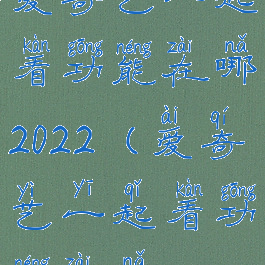 爱奇艺一起
kàn gōng néng zài nǎ
看功能在哪
ài qí
2022（爱奇
yì yī qǐ kàn gōng
艺一起看功
néng zài nǎ